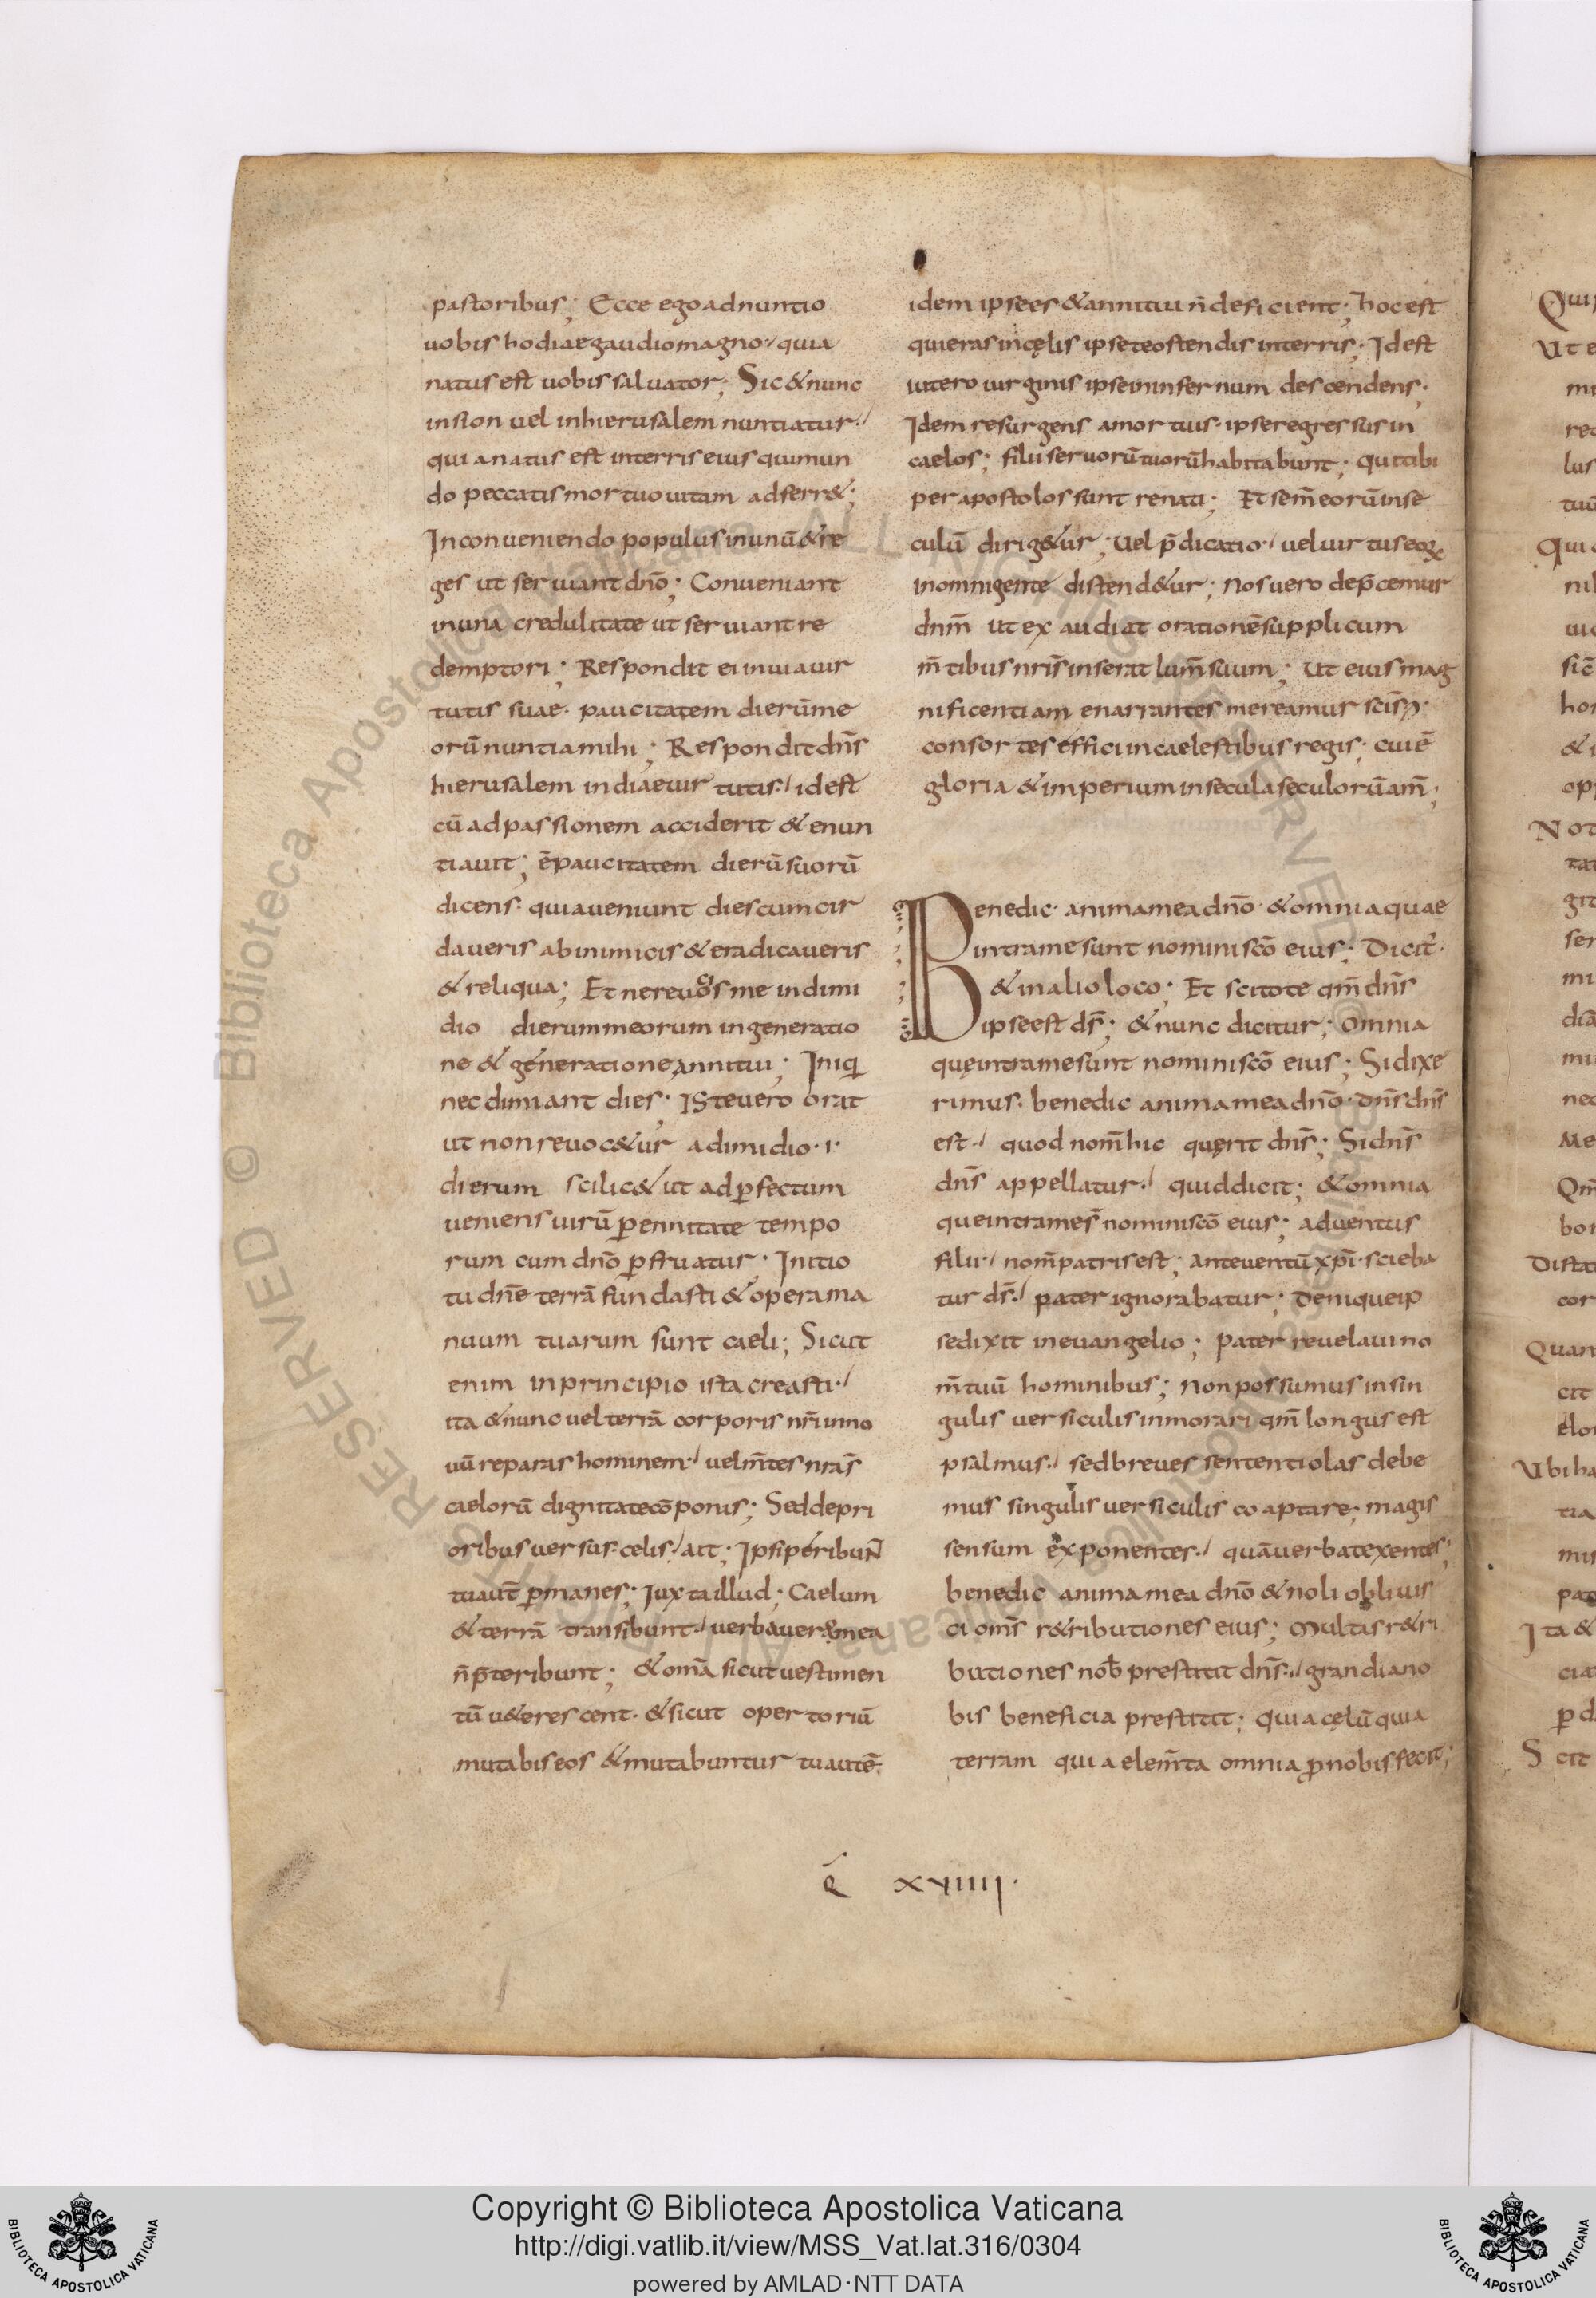 pastoribus; Ecce ego adnuntio
uobis hodiae gaudio magno·/ quia
natus est uobis saluator; Sic & nunc
in sion uel in hierusalem nuntiatur·/
quia natus est in terris eius qui mun
do peccatis mortuo uitam adferr&;
In conueniendo populus in unū & re
ges ut seruiant dnō; Conueniant
in una credulitate ut seruiant re
demptori; Respondit ei in uia uir
tutis suae· paucitatem dierū me
orū nuntia mihi; Respondit dn̄s
hierusalem in diae uir tutis·/ id est
cū ad passionem acciderit & enun
tiauit; ēpaucitatem dierū suorū
dicens· quia ueniunt dies cum cir
daueris ab inimicis & eradicaueris
& reliqua; Et ne reuoces me in dimi
dio dierum meorum in generatio
ne & generatione anni tui; Iniqi
nec dimiant dies· Iste uero orat
ut non reuoc&ur a dimidio·i·
dierum scilic& ut ad ꝑfectum
ueniens uirū ꝑennitate tempo
rum cum dnō ꝑfruatur· Initio
tu dnē terrā fundasti & opera ma
nuum tuarum sunt caeli; Sicut
enim in principio ista creasti·/
ita & nunc uel terrā corporis nr̄i in no
uū reparas hominem·/ uel m̄tes nrās
caelorū dignitate cōponis; Sed de pri
oribus uersus· celis·/ ait; Ipsi peribunt
tu aut̄ ꝑmanes; Iux ta illud; Caelum
& terrā transibunt·/ uerba uero mea
n̄ p̄teribunt; & omā sicut uestimen
tū u&erescent· & sicut opertoriū
mutabis eos & mutabuntur tu autē
idem ipse es & anni tui n̄ deficient; hoc est
qui eras in cęlis ipse te ostendis in terris; Id est
utero uirginis ipse in infernum descendens;
Idem resurgens a mortuis· ipse regressus in
caelos; filii seruorū tuorū habitabunt; qui tibi
per apostolos sunt renati; Et sem̄ eorū in se
culū dirig&ur; Uel p̄dicatio·/ uel uirtus eoꝝ
in omni gente distend&ur; Nos uero dep̄cemur
dnm̄ ut exaudiat orationē supplicum
m̄tibus nrīs inserat lum̄ suum; Ut eius mag
nificentiam enarrantes mereamur scīsꝫ·
consortes effici in caelestibus regis; cui ē
gloria & imperium in secula seculorū am̄;
Benedic· anima mea dnō· & omnia quae
intra me sunt nomini scō eius; Dicit̄·
& in alio loco; Et scitote qm̄ dn̄s
ipse est ds̄; & nunc dicitur; Omnia
quę intra me sunt nomini scō eius; Si dixe
rimus· benedic anima mea dnō· dn̄s dn̄s
est·/ quod nom̄ hic quęrit dn̄s; Si dn̄s
dn̄s appellatur·/ quid dicit; & omnia
que intra me s̄ nomini scō eius; aduentus
filii·/ nom̄ patris est; ante uentū xp̄i· scieba
tur ds̄·/ pater ignorabatur; Denique ip
se dixit in euangelio; Pater reuelaui no
m̄ tuū hominibus; Non possumus in sin
gulis uersiculis inmorari qm̄ longus est
psalmus·/ sed breues sententiolas debe
mus singulis uersiculis coaptare; magis
sensum exponentes·/ quā uerba texentes;
benedic anima mea dnō & noli obliuis
ci omīs r&ributiones eius; Multas r&ri
butiones nob̄ prestitit dn̄s·/ grandia no
bis beneficia prestitit; quia cęlū quia
terram quia elem̄ta omnia ꝓ nobis fecit;
Q̄ XXIIII·
Copyright © Biblioteca Apostolica Vaticana
http://digi.vatlib.it/view/MSS_Vat.lat.316/0304
powered by AMLAD·NTT DATA
BIBLIOTECA APOSTOLICA VATICANA
BIBLIOTECA APOSTOLICA VATICANA